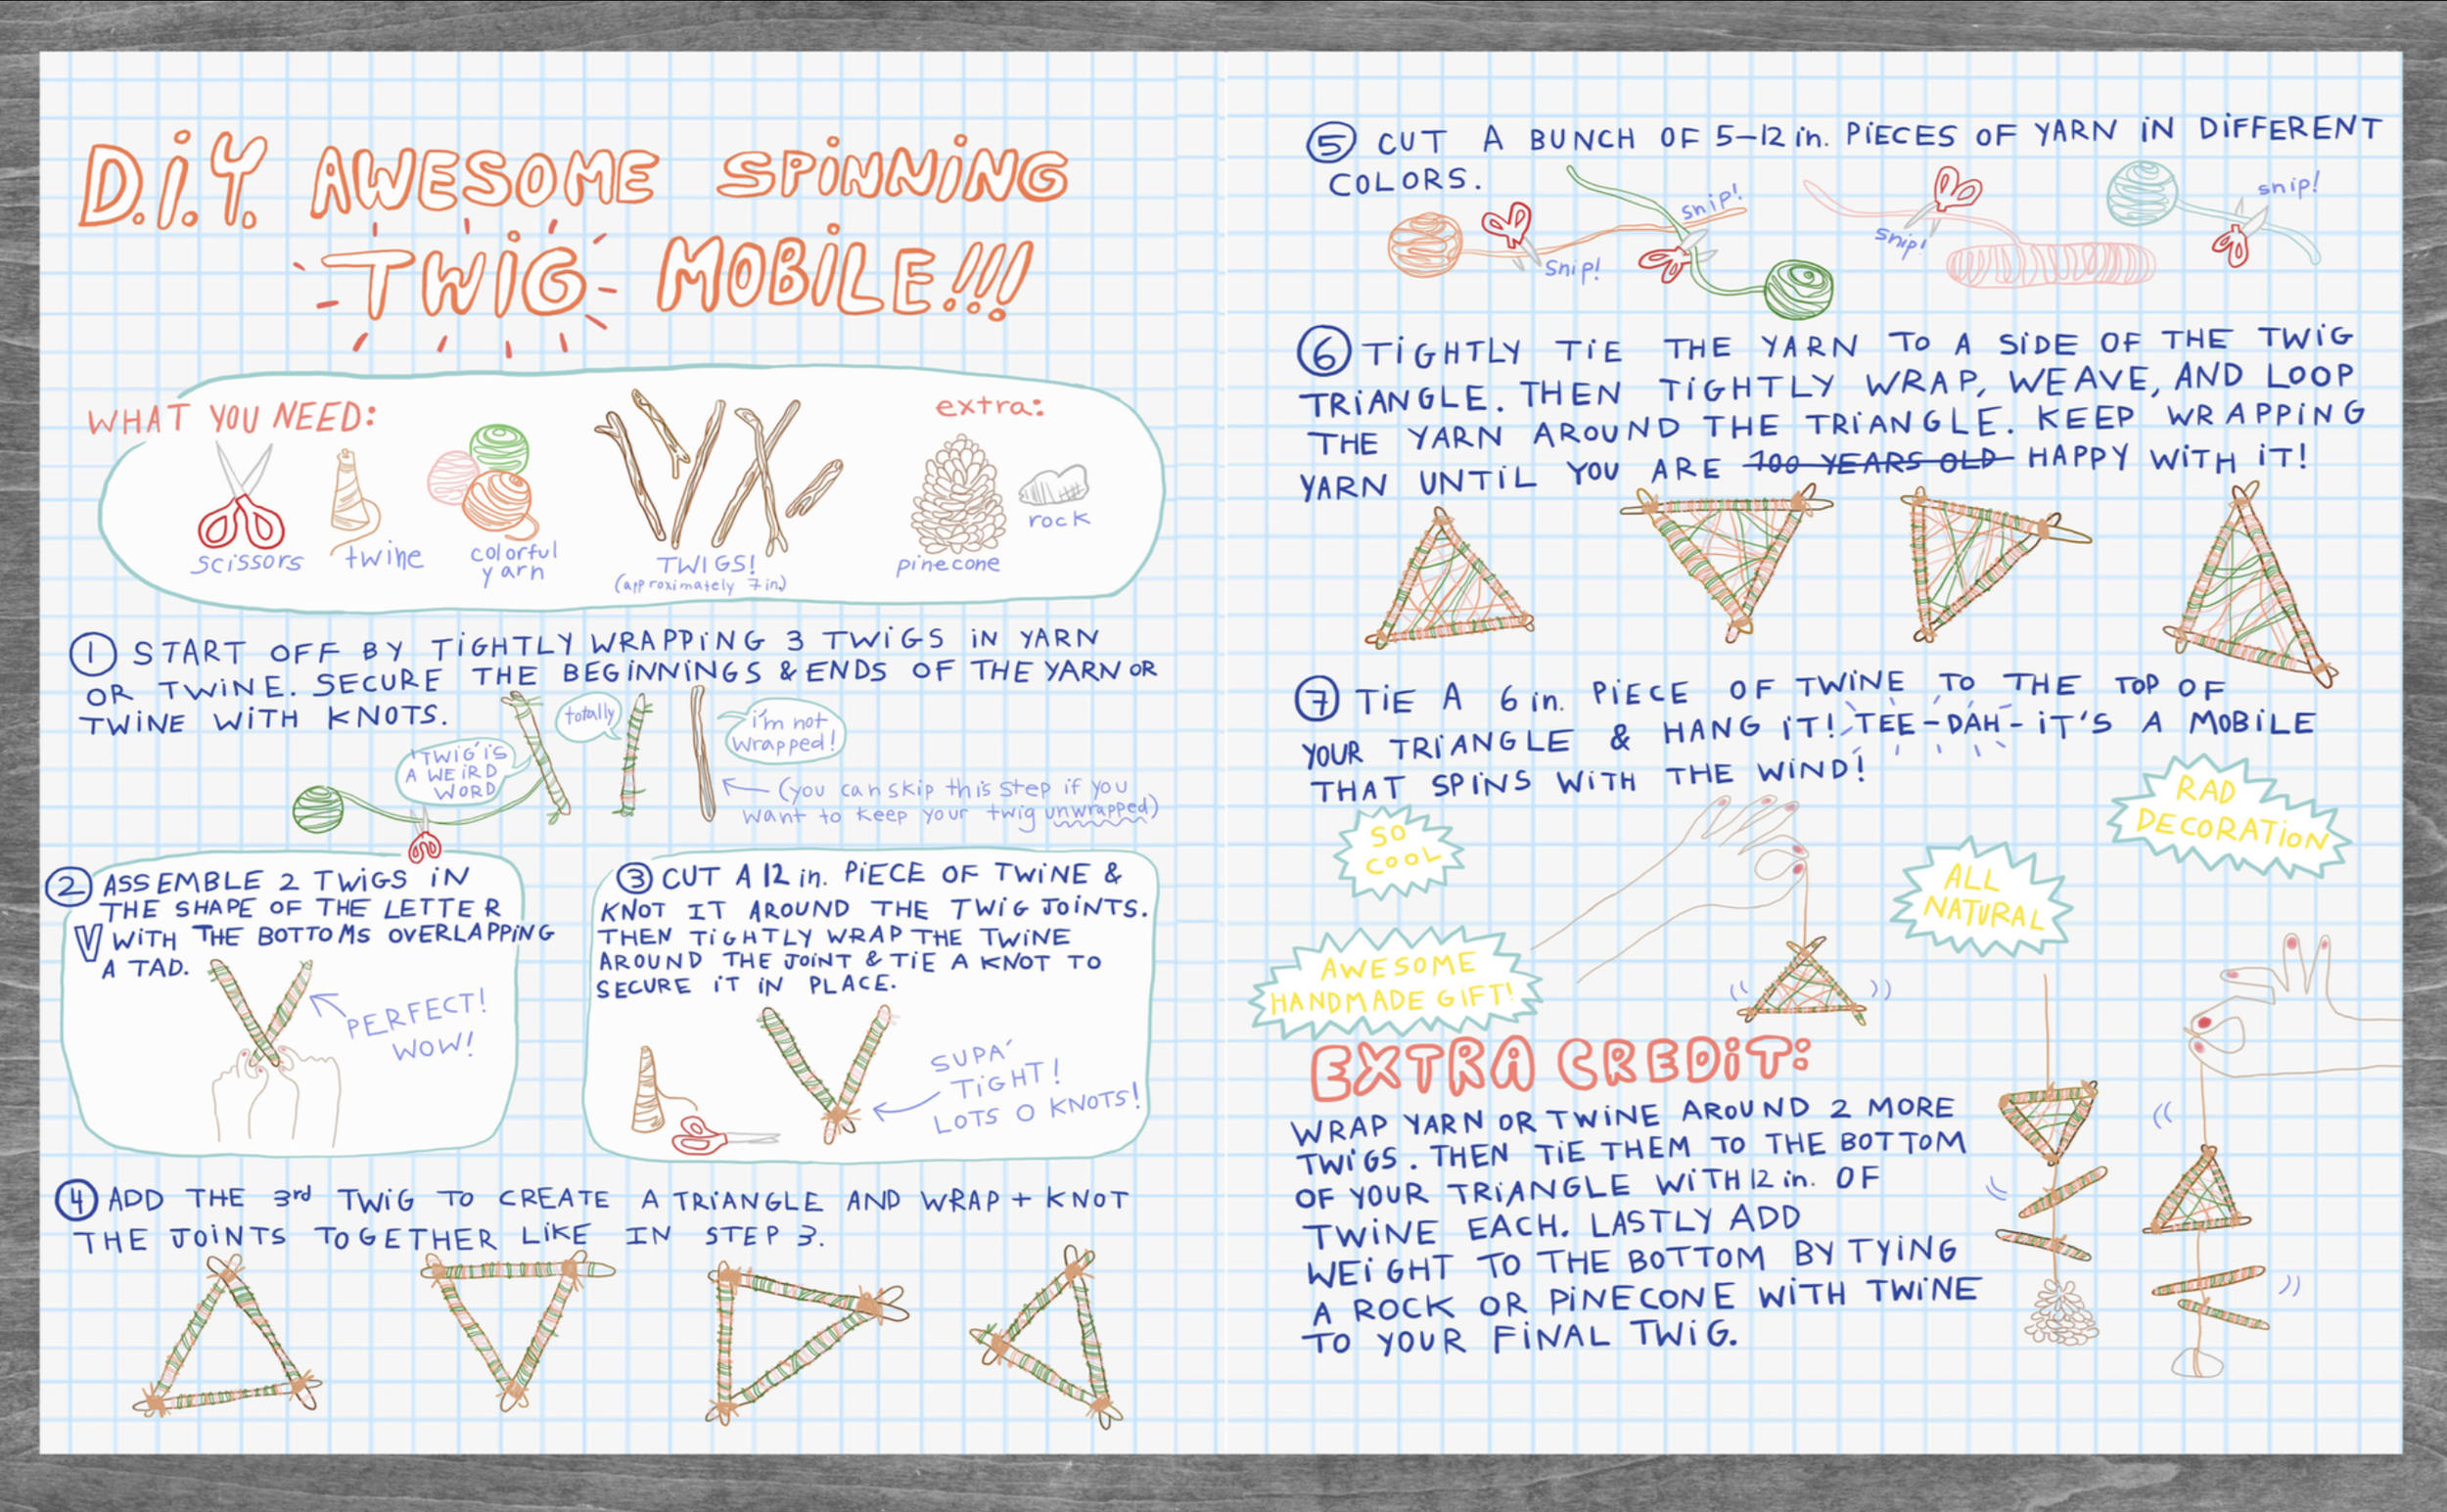 D.i.Y. AWESOME SPiNNiNG
TWiG MOBiLE!!!
WHAT YOU NEED:
scissors
twine
colorful
yarn
TWIGS!
(approximately 7in.)
extra:
pinecone
rock
1 START OFF BY TiGHTLY WRAPPiNG 3 TWiGS iN YARN
OR TWiNE. SECURE THE BEGiNNiNGS & ENDS OF THE YARN OR
TWiNE WiTH KNOTS.
"TWiG" iS
A WEiRD
WORD
totally
i'm not
wrapped!
(you can skip this step if you
want to keep your twig unwrapped)
2 ASSEMBLE 2 TWiGS iN
THE SHAPE OF THE LETTER
V WiTH THE BOTTOMS OVERLAPPiNG
A TAD.
PERFECT!
WOW!
3 CUT A 12 in. PiECE OF TWiNE &
KNOT IT AROUND THE TWiG JOiNTS.
THEN TiGHTLY WRAP THE TWiNE
AROUND THE JOiNT & TiE A KNOT TO
SECURE iT iN PLACE.
SUPA'
TiGHT!
LOTS O KNOTS!
4 ADD THE 3rd TWiG TO CREATE A TRiANGLE AND WRAP + KNOT
THE JOiNTS TOGETHER LiKE IN STEP 3.
5 CUT A BUNCH OF 5-12 in. PiECES OF YARN iN DiFFERENT
COLORS.
snip!
snip!
snip!
snip!
6 TiGHTLY TiE THE YARN TO A SiDE OF THE TWiG
TRiANGLE. THEN TiGHTLY WRAP, WEAVE, AND LOOP
THE YARN AROUND THE TRiANGLE. KEEP WRAPPiNG
YARN UNTiL YOU ARE 100 YEARS OLD HAPPY WiTH iT!
7 TiE A 6 in. PiECE OF TWiNE TO THE TOP OF
YOUR TRiANGLE & HANG iT! TEE-DAH-iT'S A MOBiLE
THAT SPiNS WiTH THE WiND!
SO
COOL
RAD
DECORATiON
ALL
NATURAL
AWESOME
HANDMADE GiFT!
EXTRA CREDiT:
WRAP YARN OR TWiNE AROUND 2 MORE
TWiGS. THEN TiE THEM TO THE BOTTOM
OF YOUR TRiANGLE WiTH 12 in. OF
TWiNE EACH. LASTLY ADD
WEiGHT TO THE BOTTOM BY TYiNG
A ROCK OR PiNECONE WiTH TWiNE
TO YOUR FiNAL TWiG.